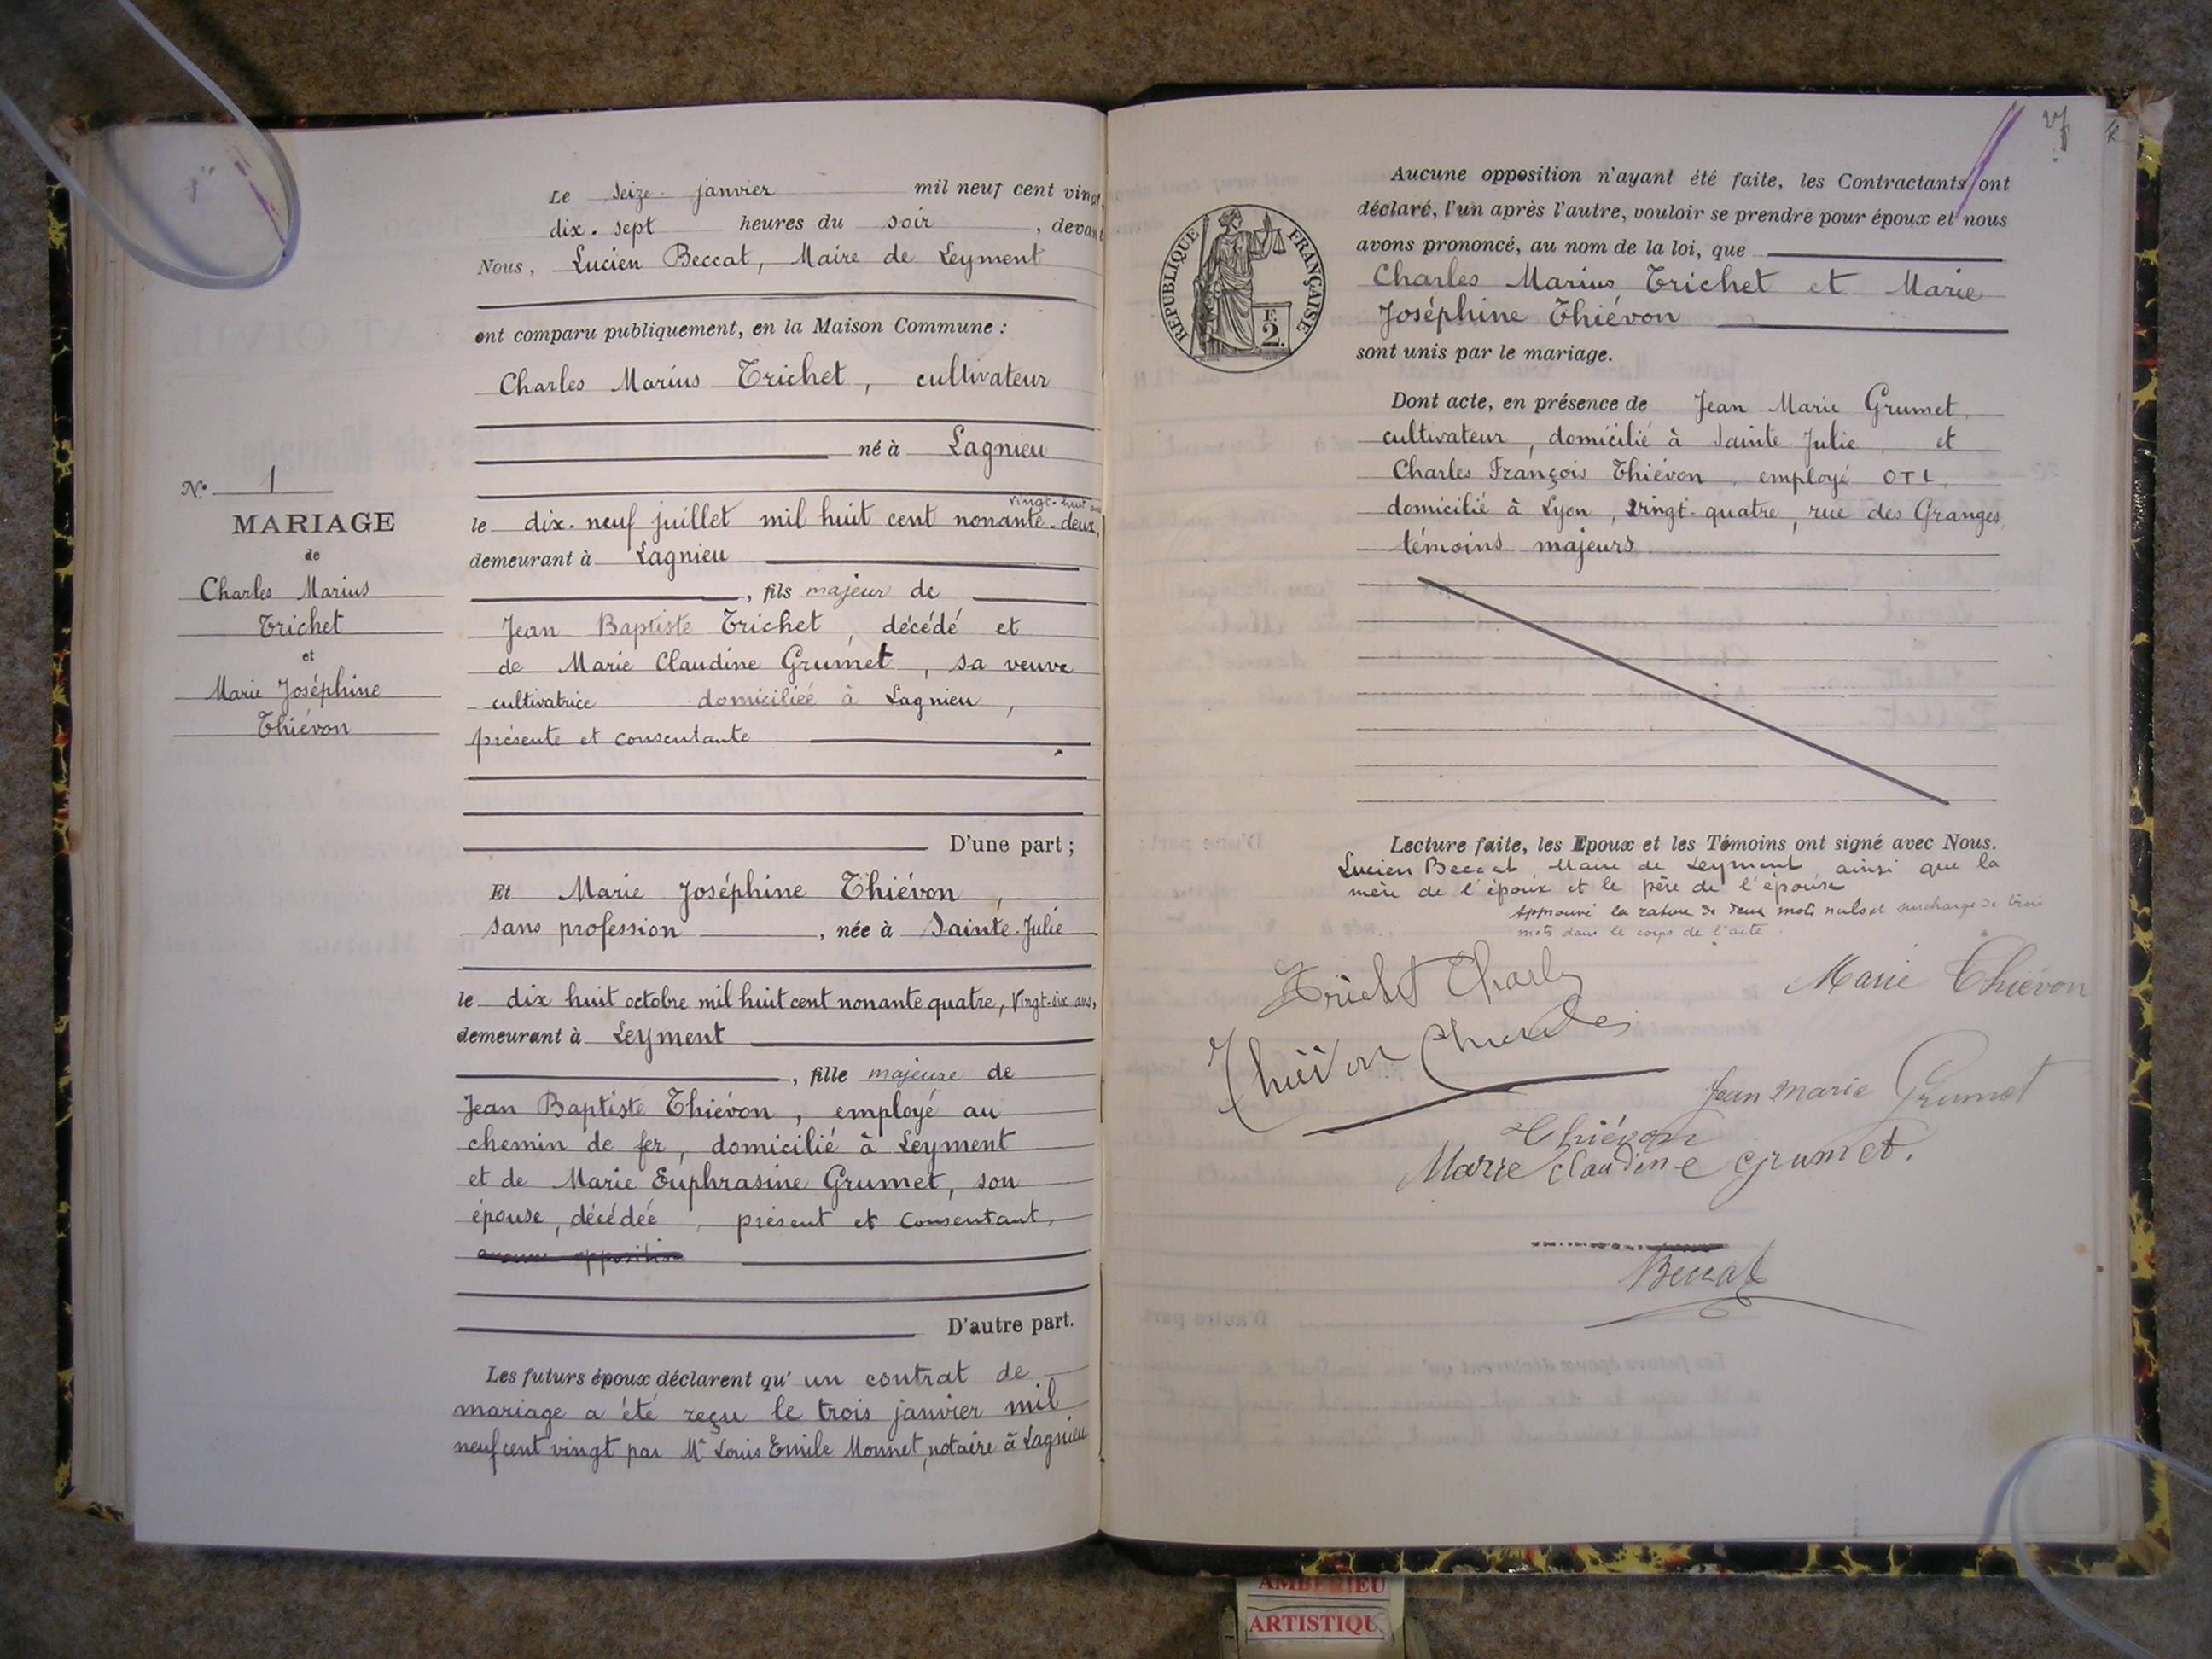 Le seize janvier mil neuf cent vingt,
dix-sept heures du soir, devant
Nous, Lucien Beccat, Maire de Leyment
ont comparu publiquement, en la Maison Commune :
Charles Marius Trichet, cultivateur
né à Lagnieu
vingt-huit ans
le dix-neuf juillet mil huit cent nonante-deux,
demeurant à Lagnieu
, fils majeur de
Jean Baptiste Trichet, décédé et
de Marie Claudine Grumet, sa veuve
cultivatrice domiciliée à Lagnieu,
présente et consentante
D'une part ;
Et Marie Joséphine Thiévon,
sans profession, née à Sainte-Julie
le dix huit octobre mil huit cent nonante quatre, vingt-six ans,
demeurant à Leyment
, fille majeure de
Jean Baptiste Thiévon, employé au
chemin de fer, domicilié à Leyment
et de Marie Euphrasine Grumet, son
épouse, décédée, présent et consentant,
aucune opposition
D'autre part.
Les futurs époux déclarent qu'un contrat de
mariage a été reçu le trois janvier mil
neuf cent vingt par Me Louis Emile Monnet, notaire à Lagnieu
N° 1
MARIAGE
de
Charles Marius
Trichet
et
Marie Joséphine
Thiévon
Aucune opposition n'ayant été faite, les Contractants ont
déclaré, l'un après l'autre, vouloir se prendre pour époux et nous
avons prononcé, au nom de la loi, que
Charles Marius Trichet et Marie
Joséphine Thiévon
sont unis par le mariage.
RÉPUBLIQUE FRANÇAISE
F.
2.
Dont acte, en présence de Jean Marie Grumet,
cultivateur, domicilié à Sainte Julie, et
Charles François Thiévon, employé OTL,
domicilié à Lyon, vingt-quatre, rue des Granges,
témoins majeurs
Lecture faite, les Epoux et les Témoins ont signé avec Nous.
Lucien Beccat, Maire de Leyment ainsi que la
mère de l'époux et le père de l'épouse
Approuvé la rature de deux mots nuls et surcharge de trois
mots dans le corps de l'acte
Trichet Charles
Marie Thiévon
Thiévon Charles
Jean Marie Grumet
Thiévon
Marie Claudine Grumet.
Beccat
AMBERIEU
ARTISTIQU